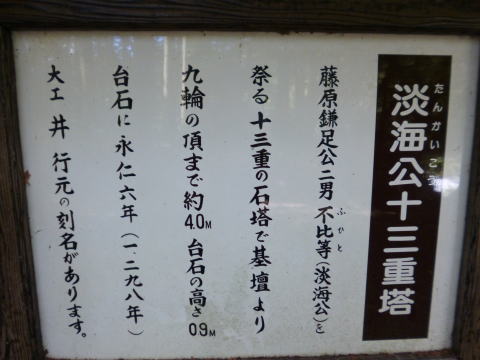 淡海公十三重塔
たんかいこう
藤原鎌足公二男 不比等(淡海公)を
ふひと
祭る 十三重の石塔で基壇より
九輪の頂まで約4.0M 台石の高さ0.9M
台石に 永仁六年(一二九八年)
大工 井 行元の刻名があります。